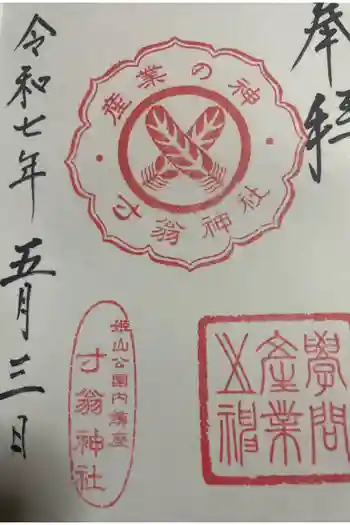 奉拝
産業の神
寸翁神社
學問
産業
之神
姫山公園内鎮座
寸翁神社
令和七年
五月三日